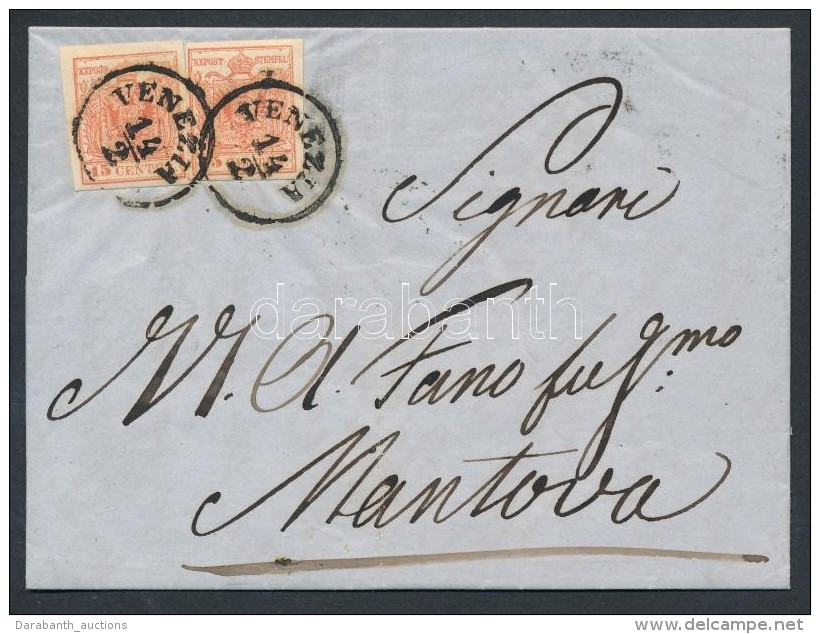 KKPOST-STEMPEL
15 CENTES
VENEZIA
14/2
VENEZIA
14/2
Signori
M. d. Fano fu G.mo
Mantova
darabanth
Darabanth_auctions
delcampe.net